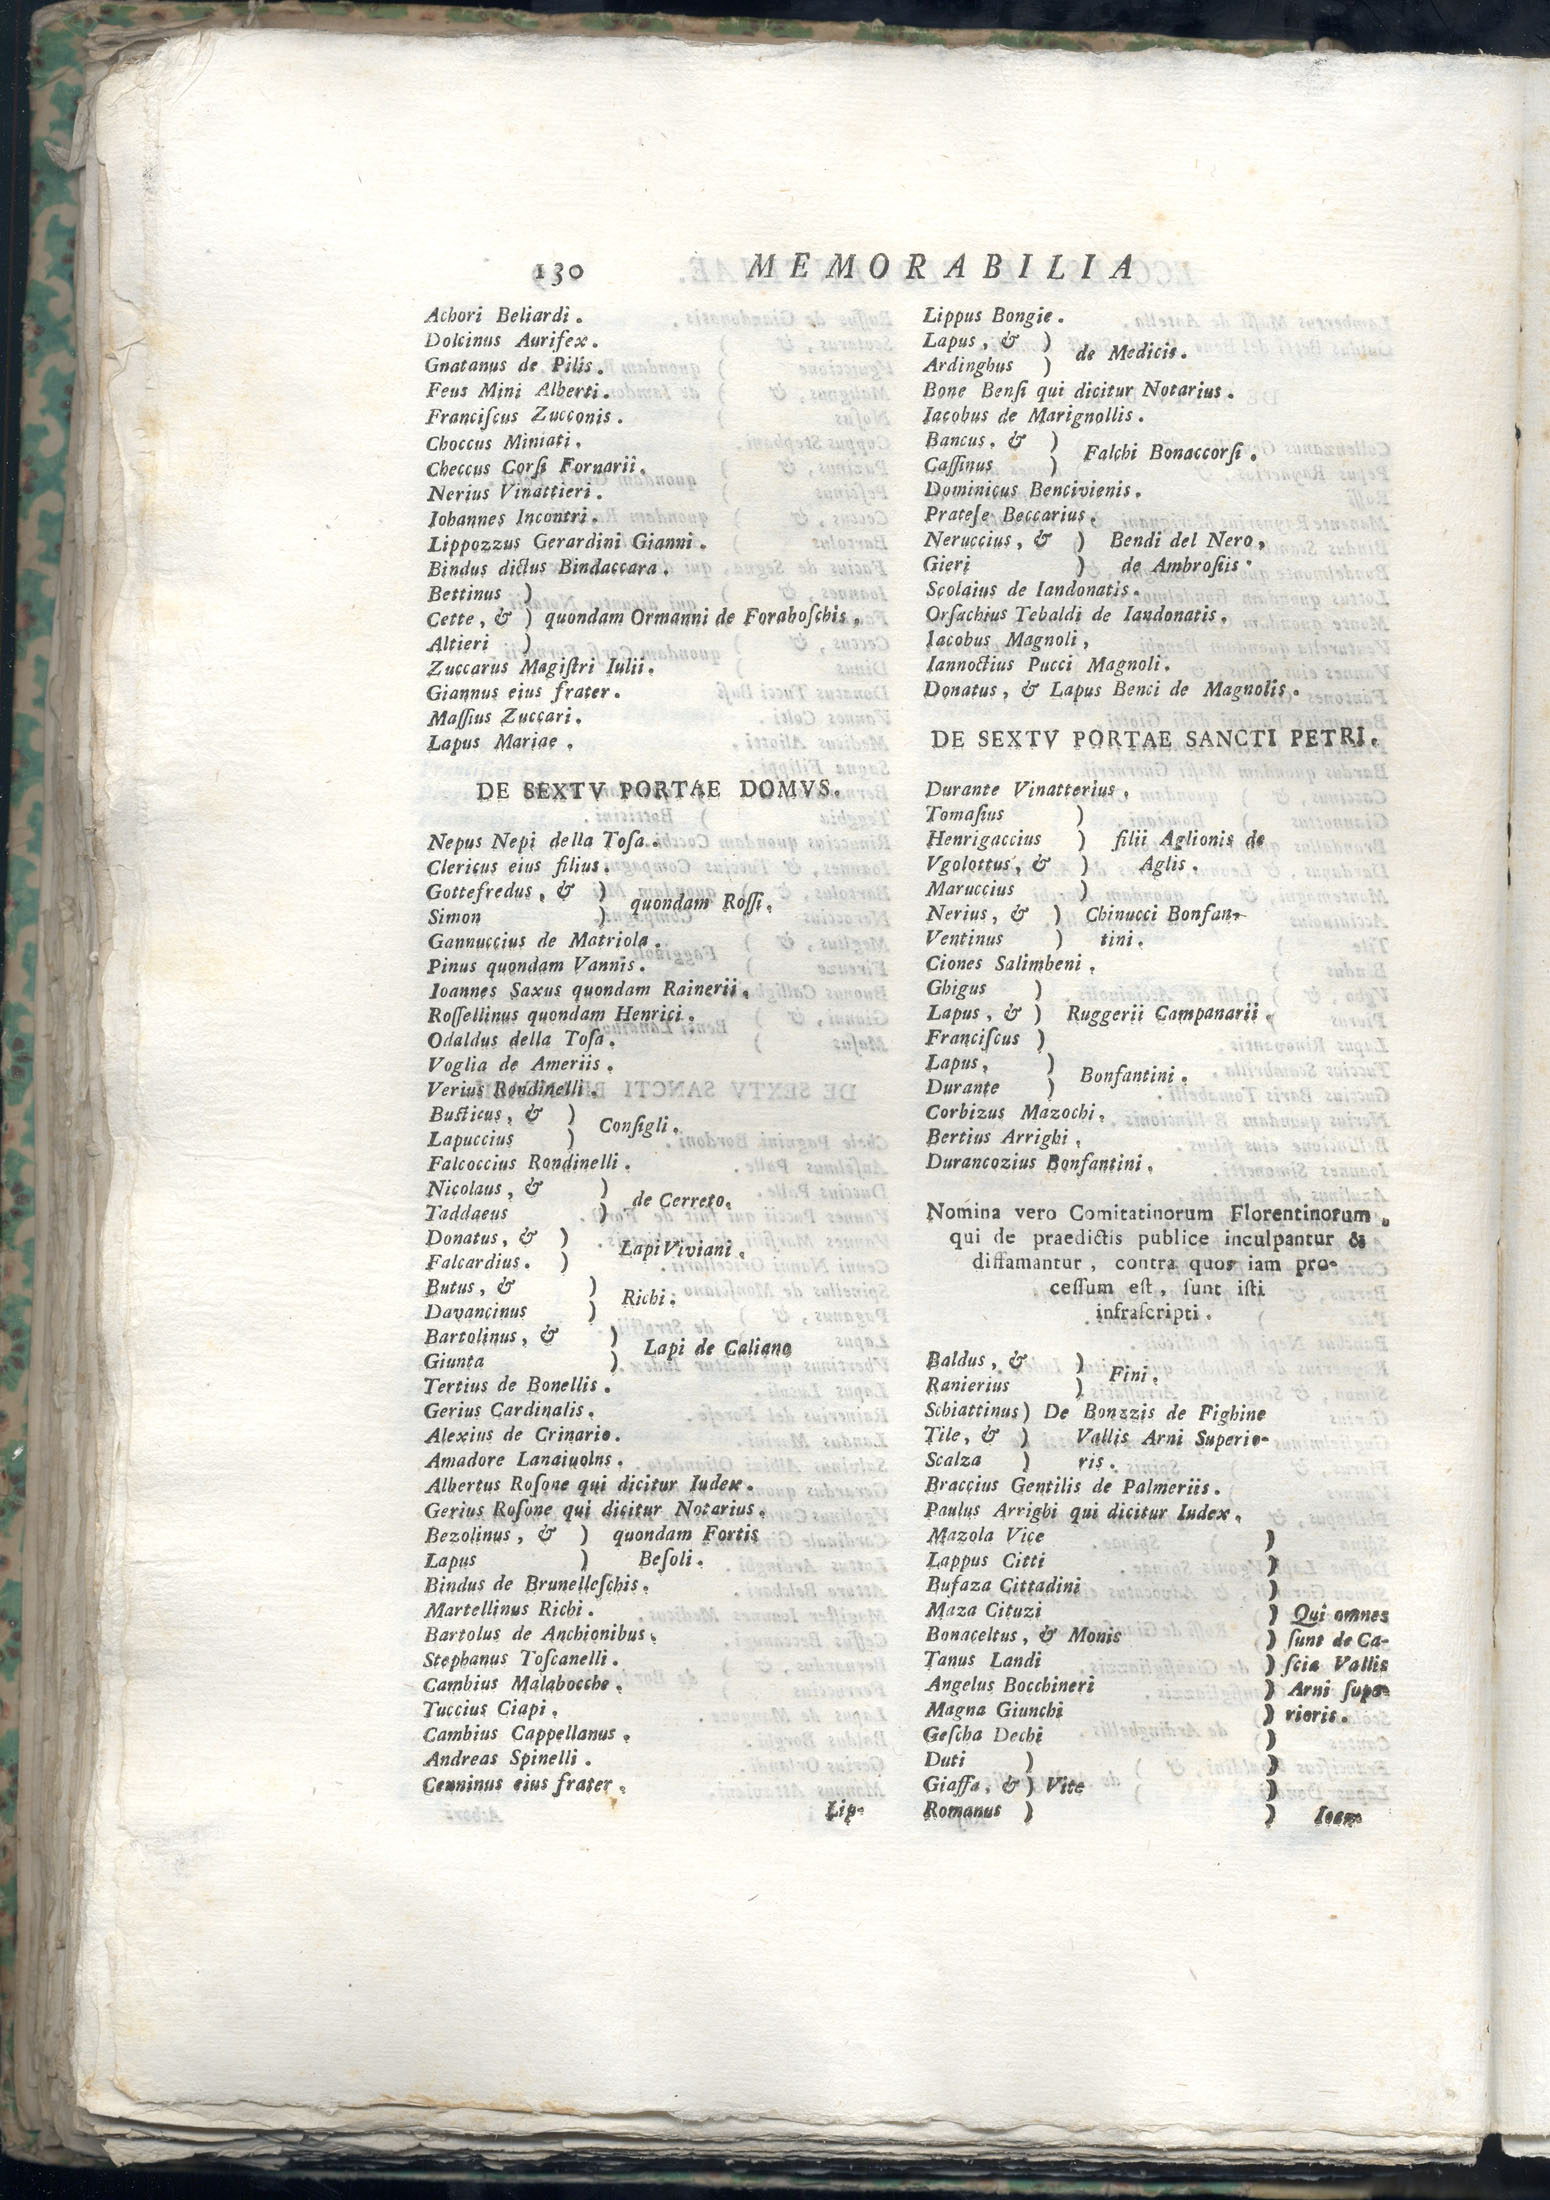 130 MEMORABILIA
Achori Beliardi.
Dolcinus Aurifex.
Gnatanus de Pilis.
Feus Mini Alberti.
Franciſcus Zucconis.
Choccus Miniati.
Checcus Corſi Fornarii.
Nerius Vinattieri.
Iohannes Incontri.
Lippozzus Gerardini Gianni.
Bindus dictus Bindaccara.
Bettinus )
Cette, & ) quondam Ormanni de Foraboſchis.
Altieri )
Zuccarus Magiſtri Iulii.
Giannus eius frater.
Maſſius Zuccari.
Lapus Mariae.
DE SEXTV PORTAE DOMVS.
Nepus Nepi della Toſa.
Clericus eius filius.
Gottefredus, & )
quondam Roſſi.
Simon )
Gannuccius de Matriola.
Pinus quondam Vannis.
Ioannes Saxus quondam Rainerii.
Roſſellinus quondam Henrici.
Odaldus della Toſa.
Voglia de Ameriis.
Verius Rondinelli.
Buſticus, & )
Conſigli.
Lapuccius )
Falcoccius Rondinelli.
Nicolaus, & )
de Cerreto.
Taddaeus )
Donatus, & )
Lapi Viviani.
Falcardius. )
Butus, & )
Richi.
Davancinus )
Bartolinus, & )
Lapi de Caliano
Giunta )
Tertius de Bonellis.
Gerius Cardinalis.
Alexius de Crinario.
Amadore Lanaiuolus.
Albertus Roſone qui dicitur Iudex.
Gerius Roſone qui dicitur Notarius.
Bezolinus, & ) quondam Fortis
Lapus ) Beſoli.
Bindus de Brunelleſchis.
Martellinus Richi.
Bartolus de Anchionibus.
Stephanus Toſcanelli.
Cambius Malabocche.
Tuccius Ciapi.
Cambius Cappellanus.
Andreas Spinelli.
Cenninus eius frater.
Lip-
Lippus Bongie.
Lapus, & )
de Medicis.
Ardinghus )
Bone Benſi qui dicitur Notarius.
Iacobus de Marignollis.
Bancus, & )
Falchi Bonaccorſi.
Caſſinus )
Dominicus Bencivienis.
Prateſe Beccarius.
Neruccius, & ) Bendi del Nero,
Gieri ) de Ambroſiis.
Scolaius de Iandonatis.
Orſachius Tebaldi de Iandonatis.
Iacobus Magnoli,
Iannoctius Pucci Magnoli.
Donatus, & Lapus Benci de Magnolis.
DE SEXTV PORTAE SANCTI PETRI.
Durante Vinatterius.
Tomaſius )
Henrigaccius ) filii Aglionis de
Vgolottus, & ) Aglis.
Maruccius )
Nerius, & ) Chinucci Bonfan-
Ventinus ) tini.
Ciones Salimbeni.
Ghigus )
Lapus, & ) Ruggerii Campanarii.
Franciſcus )
Lapus, )
Bonfantini.
Durante )
Corbizus Mazochi.
Bertius Arrighi.
Durancozius Bonfantini.
Nomina vero Comitatinorum Florentinorum,
qui de praedictis publice inculpantur &
diffamantur, contra quos iam pro-
ceſſum eſt, ſunt iſti
infraſcripti.
Baldus, & )
Fini.
Ranierius )
Schiattinus ) De Bonzzis de Fighine
Tile, & ) Vallis Arni Superio-
Scalza ) ris.
Braccius Gentilis de Palmeriis.
Paulus Arrighi qui dicitur Iudex.
Mazola Vice )
Lappus Citti )
Bufaza Cittadini )
Maza Cituzi ) Qui omnes
Bonaceltus, & Monis ) ſunt de Ca-
Tanus Landi ) ſcia Vallis
Angelus Bocchineri ) Arni ſupe-
Magna Giunchi ) rioris.
Geſcha Dechi )
Duti ) )
Giaſſa, & ) Vite )
Romanus ) ) Ioan-